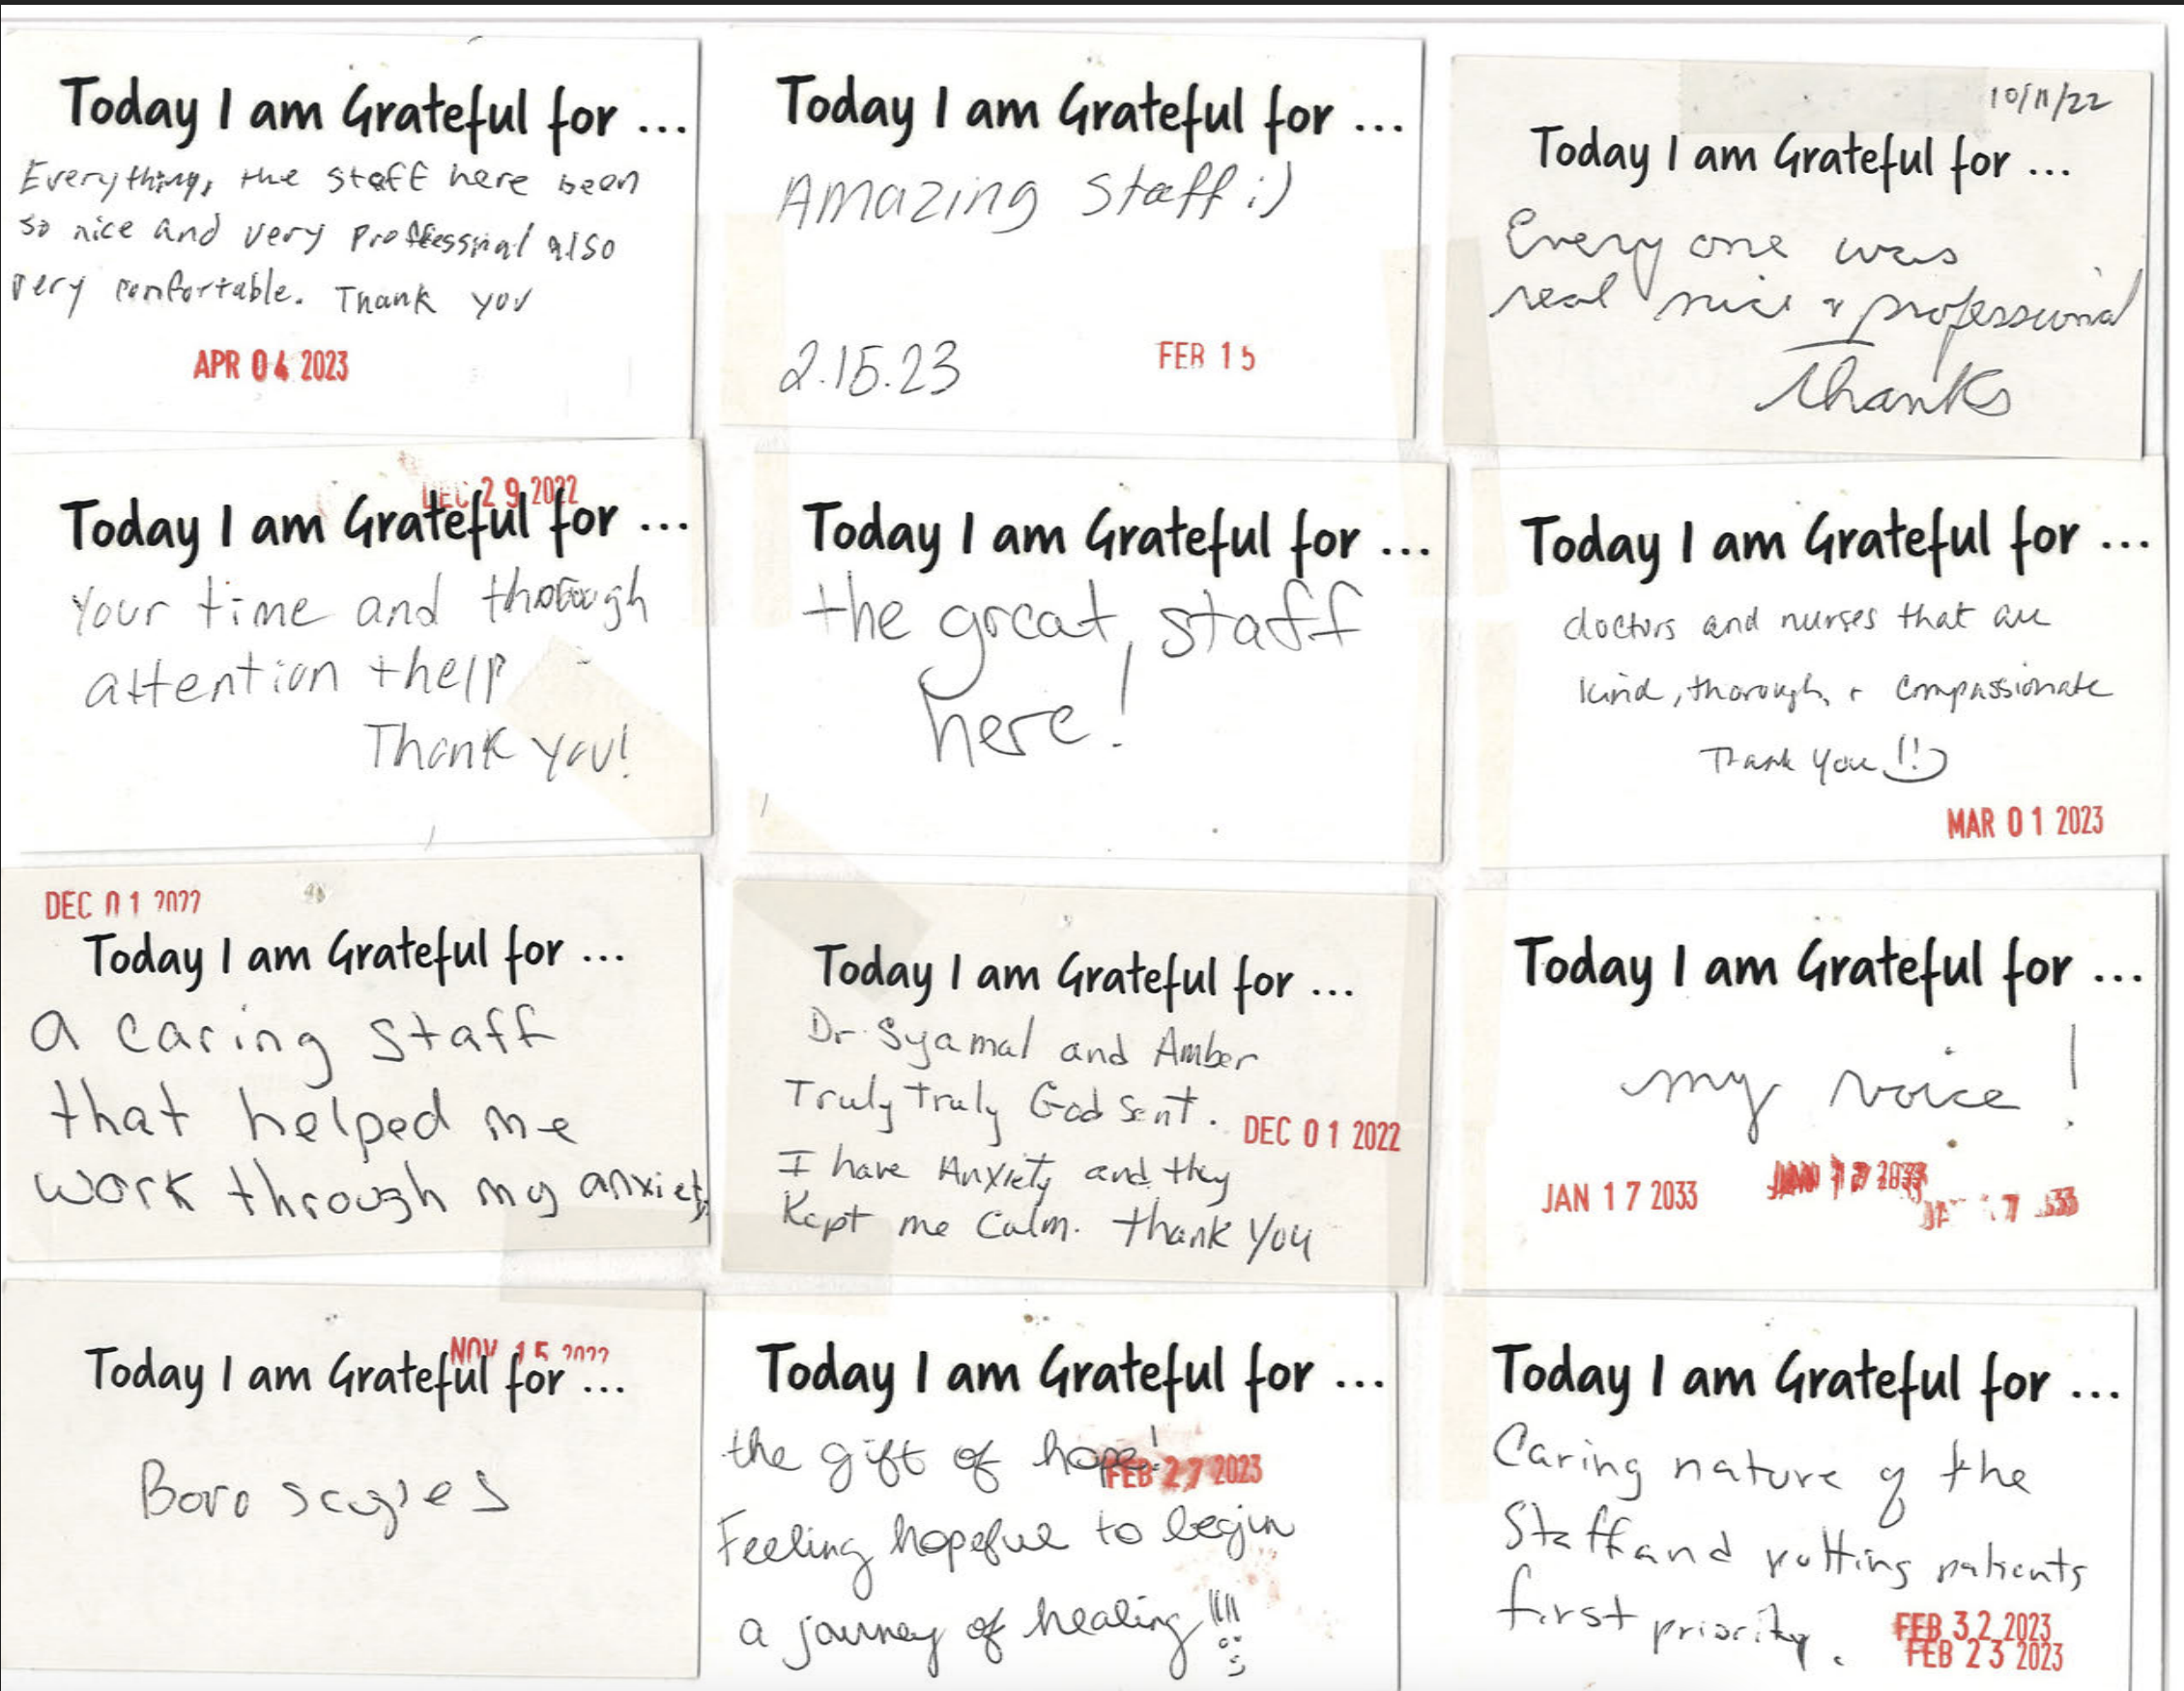 Today I am Grateful for ...
Everything, the staff here been
so nice and very proffessinal also
very comfortable. Thank you
APR 04 2023
Today I am Grateful for ...
Amazing Staff :)
2.15.23
FEB 15
10/11/22
Today I am Grateful for ...
Every one was
real nice & professional
Thanks
DEC 29 2022
Today I am Grateful for ...
Your time and thorough
attention + help
Thank you!
Today I am Grateful for ...
the great staff
here!
Today I am Grateful for ...
doctors and nurses that are
kind, thorough, + compassionate
Thank you !! :)
MAR 01 2023
DEC 01 2022
Today I am Grateful for ...
a caring staff
that helped me
work through my anxiety
Today I am Grateful for ...
Dr. Syamal and Amber
Truly truly God sent.
DEC 01 2022
I have Anxiety and they
Kept me Calm. thank You
Today I am Grateful for ...
my voice !
JAN 17 2033
JAN 17 2033
NOV 15 2022
Today I am Grateful for ...
Today I am Grateful for ...
the gift of hope!
FEB 27 2023
Feeling hopeful to begin
a journey of healing !!!!
Today I am Grateful for ...
Caring nature of the
Staff and putting patients
first priority.
FEB 32 2023
FEB 23 2023